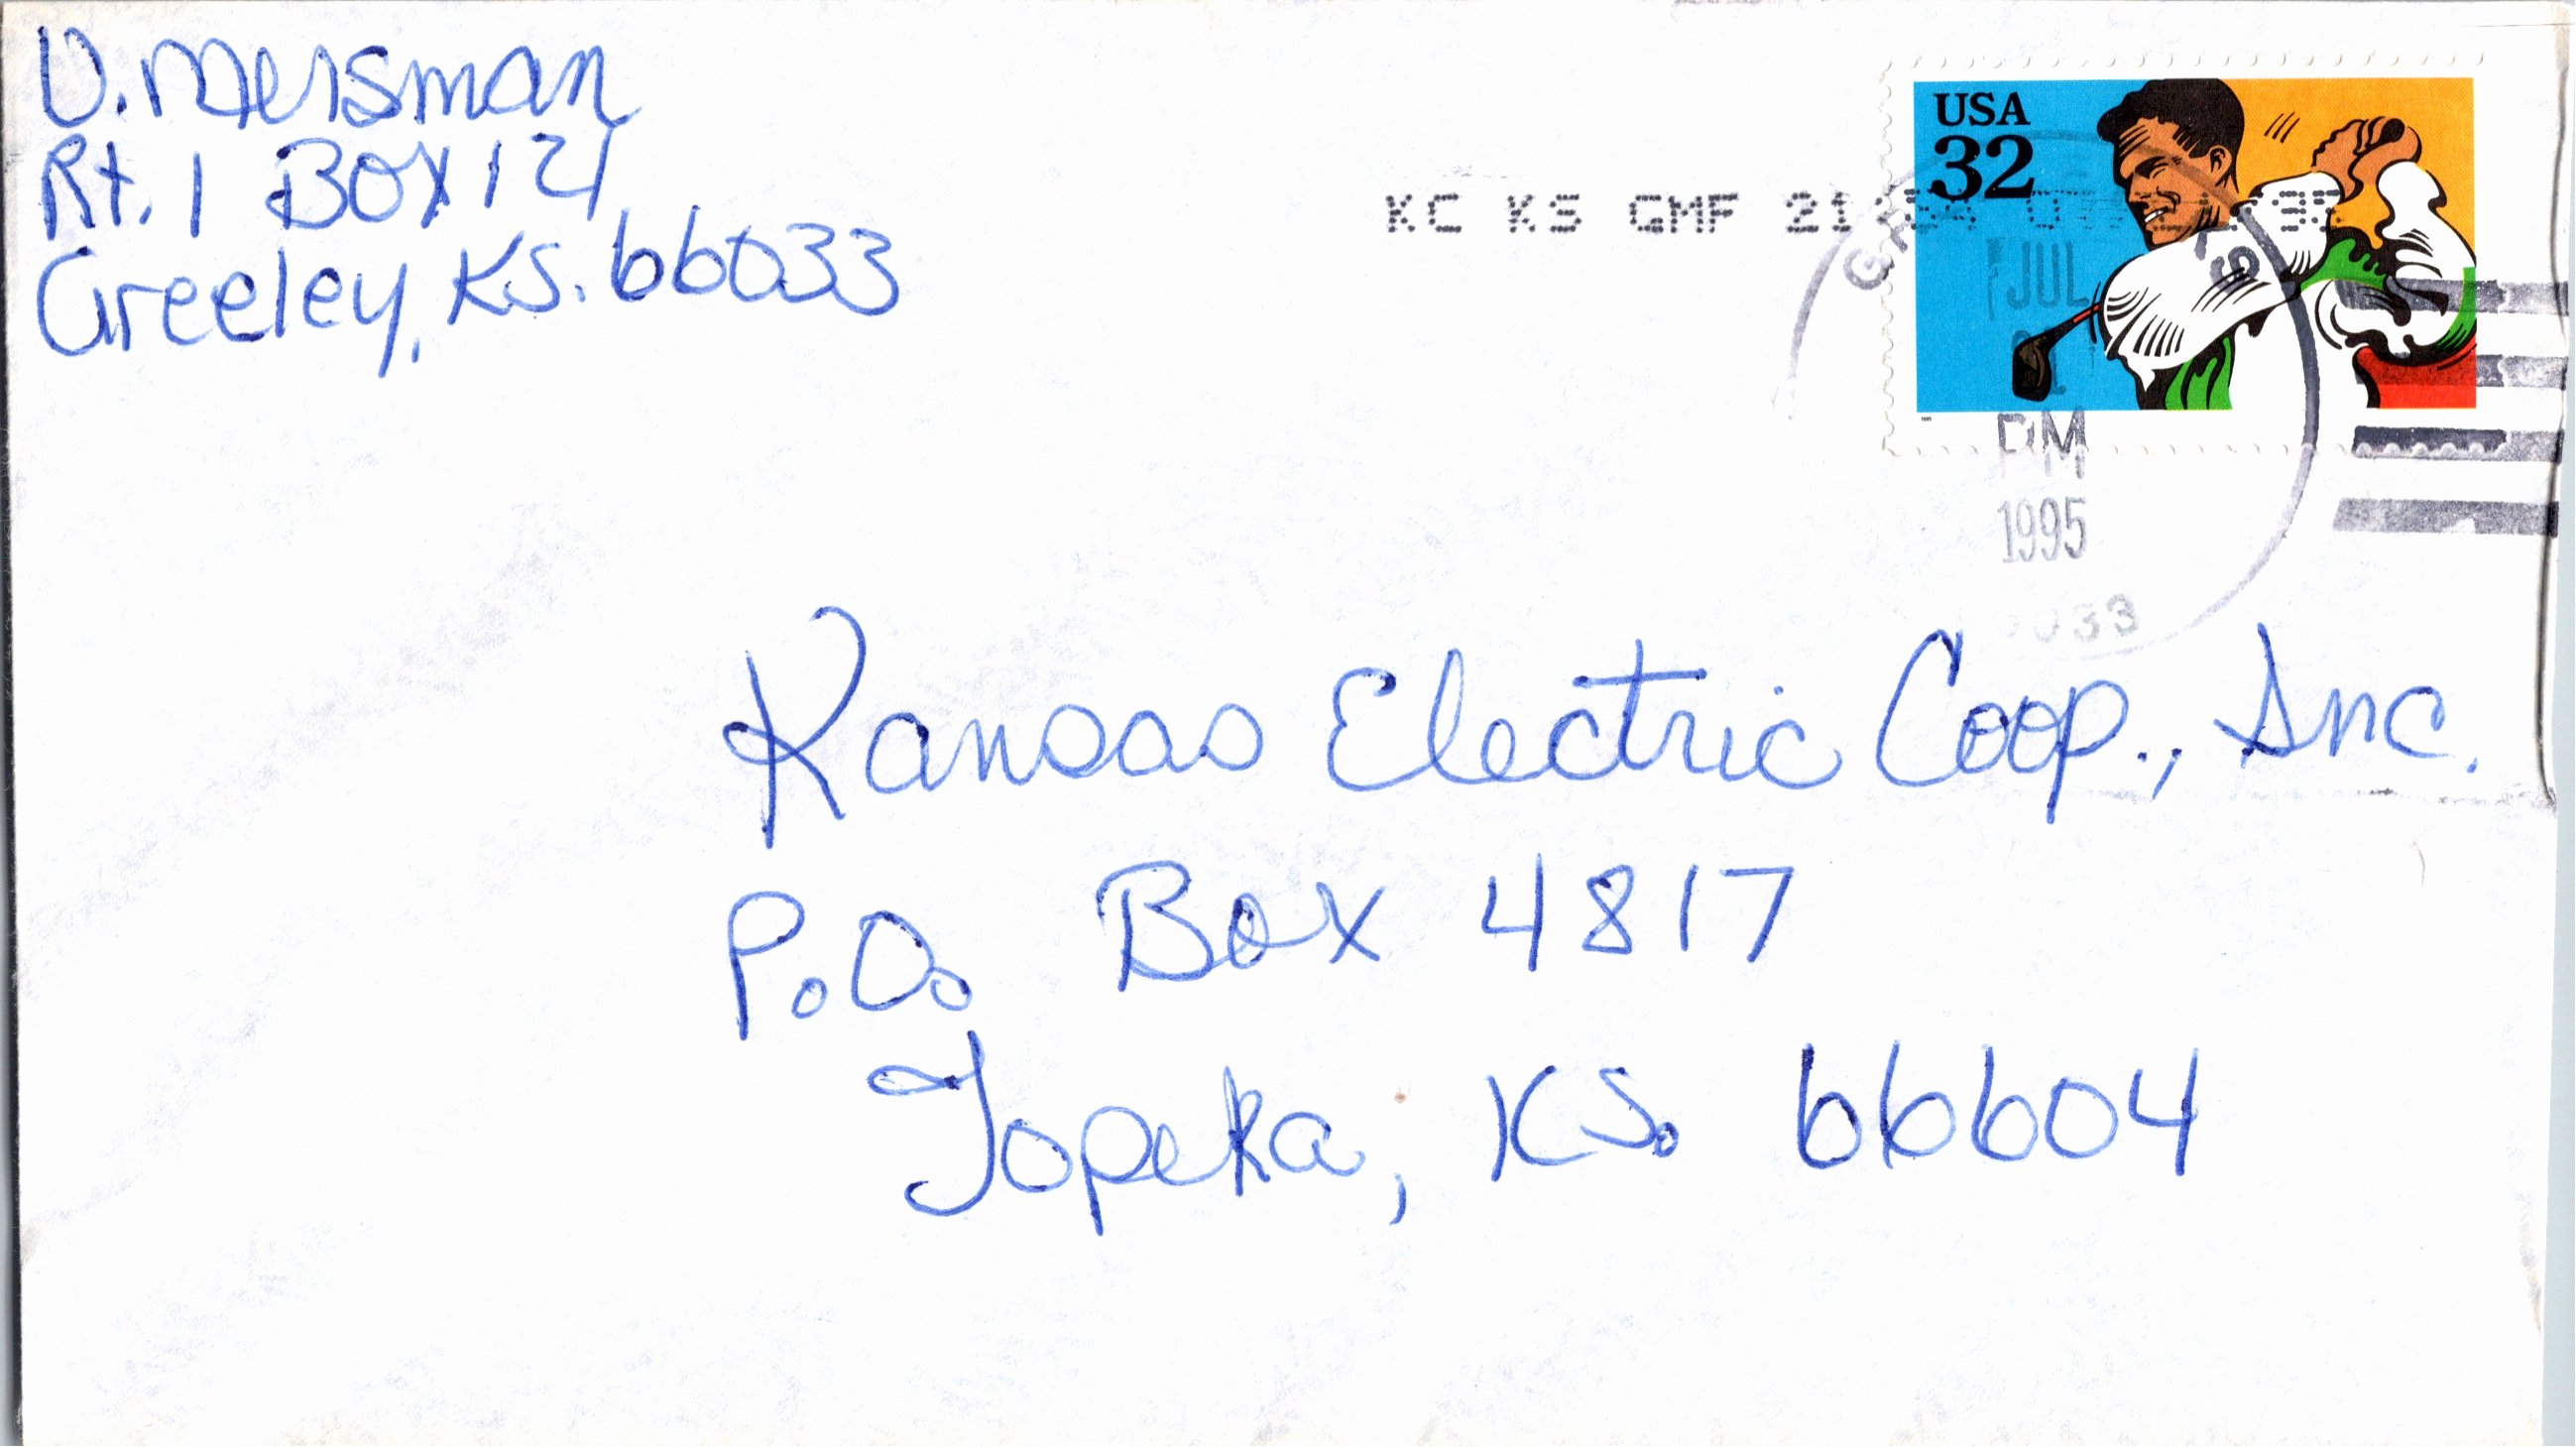 V. Mersman
Rt. 1 Box 121
Greeley, KS. 66033
USA
32
KC KS GMF 21
JUL
PM
1995
Kansas Electric Coop., Inc.
P.O. Box 4817
Topeka, KS. 66604